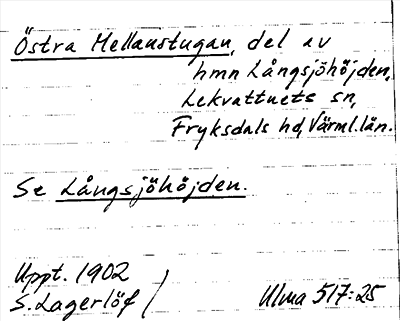 Östra Mellanstugan, del av
hmn Långsjöhöjden,
Lekvattnets sn,
Fryksdals hd, Värml. län.
Se Långsjöhöjden.
Uppt. 1902
S. Lagerlöf
Ulma 517:25